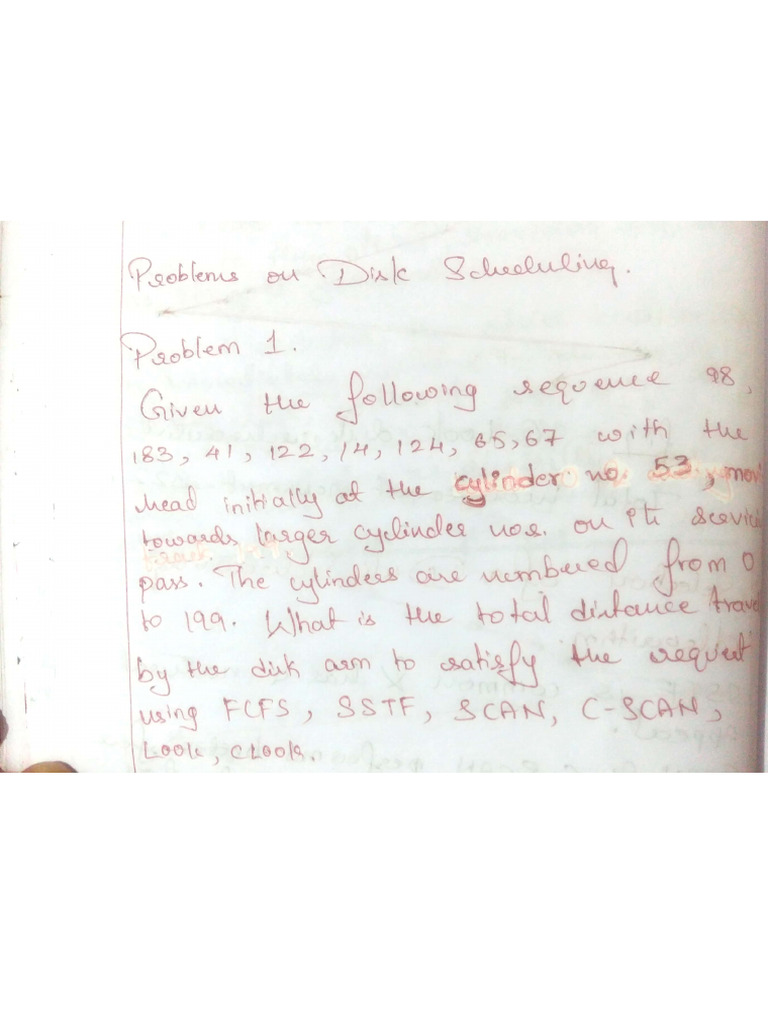 Problems on Disk Scheduling.
Problem 1.
Given the following sequence 98,
183, 41, 122, 14, 124, 65, 67 with the
head initially at the cylinder no. 53, movi
towards larger cyclinder nos. on its servici
pass. The cylinders are numbered from 0
to 199. What is the total distance trave
by the disk arm to satisfy the request
using FCFS, SSTF, SCAN, C-SCAN,
Look, CLook.